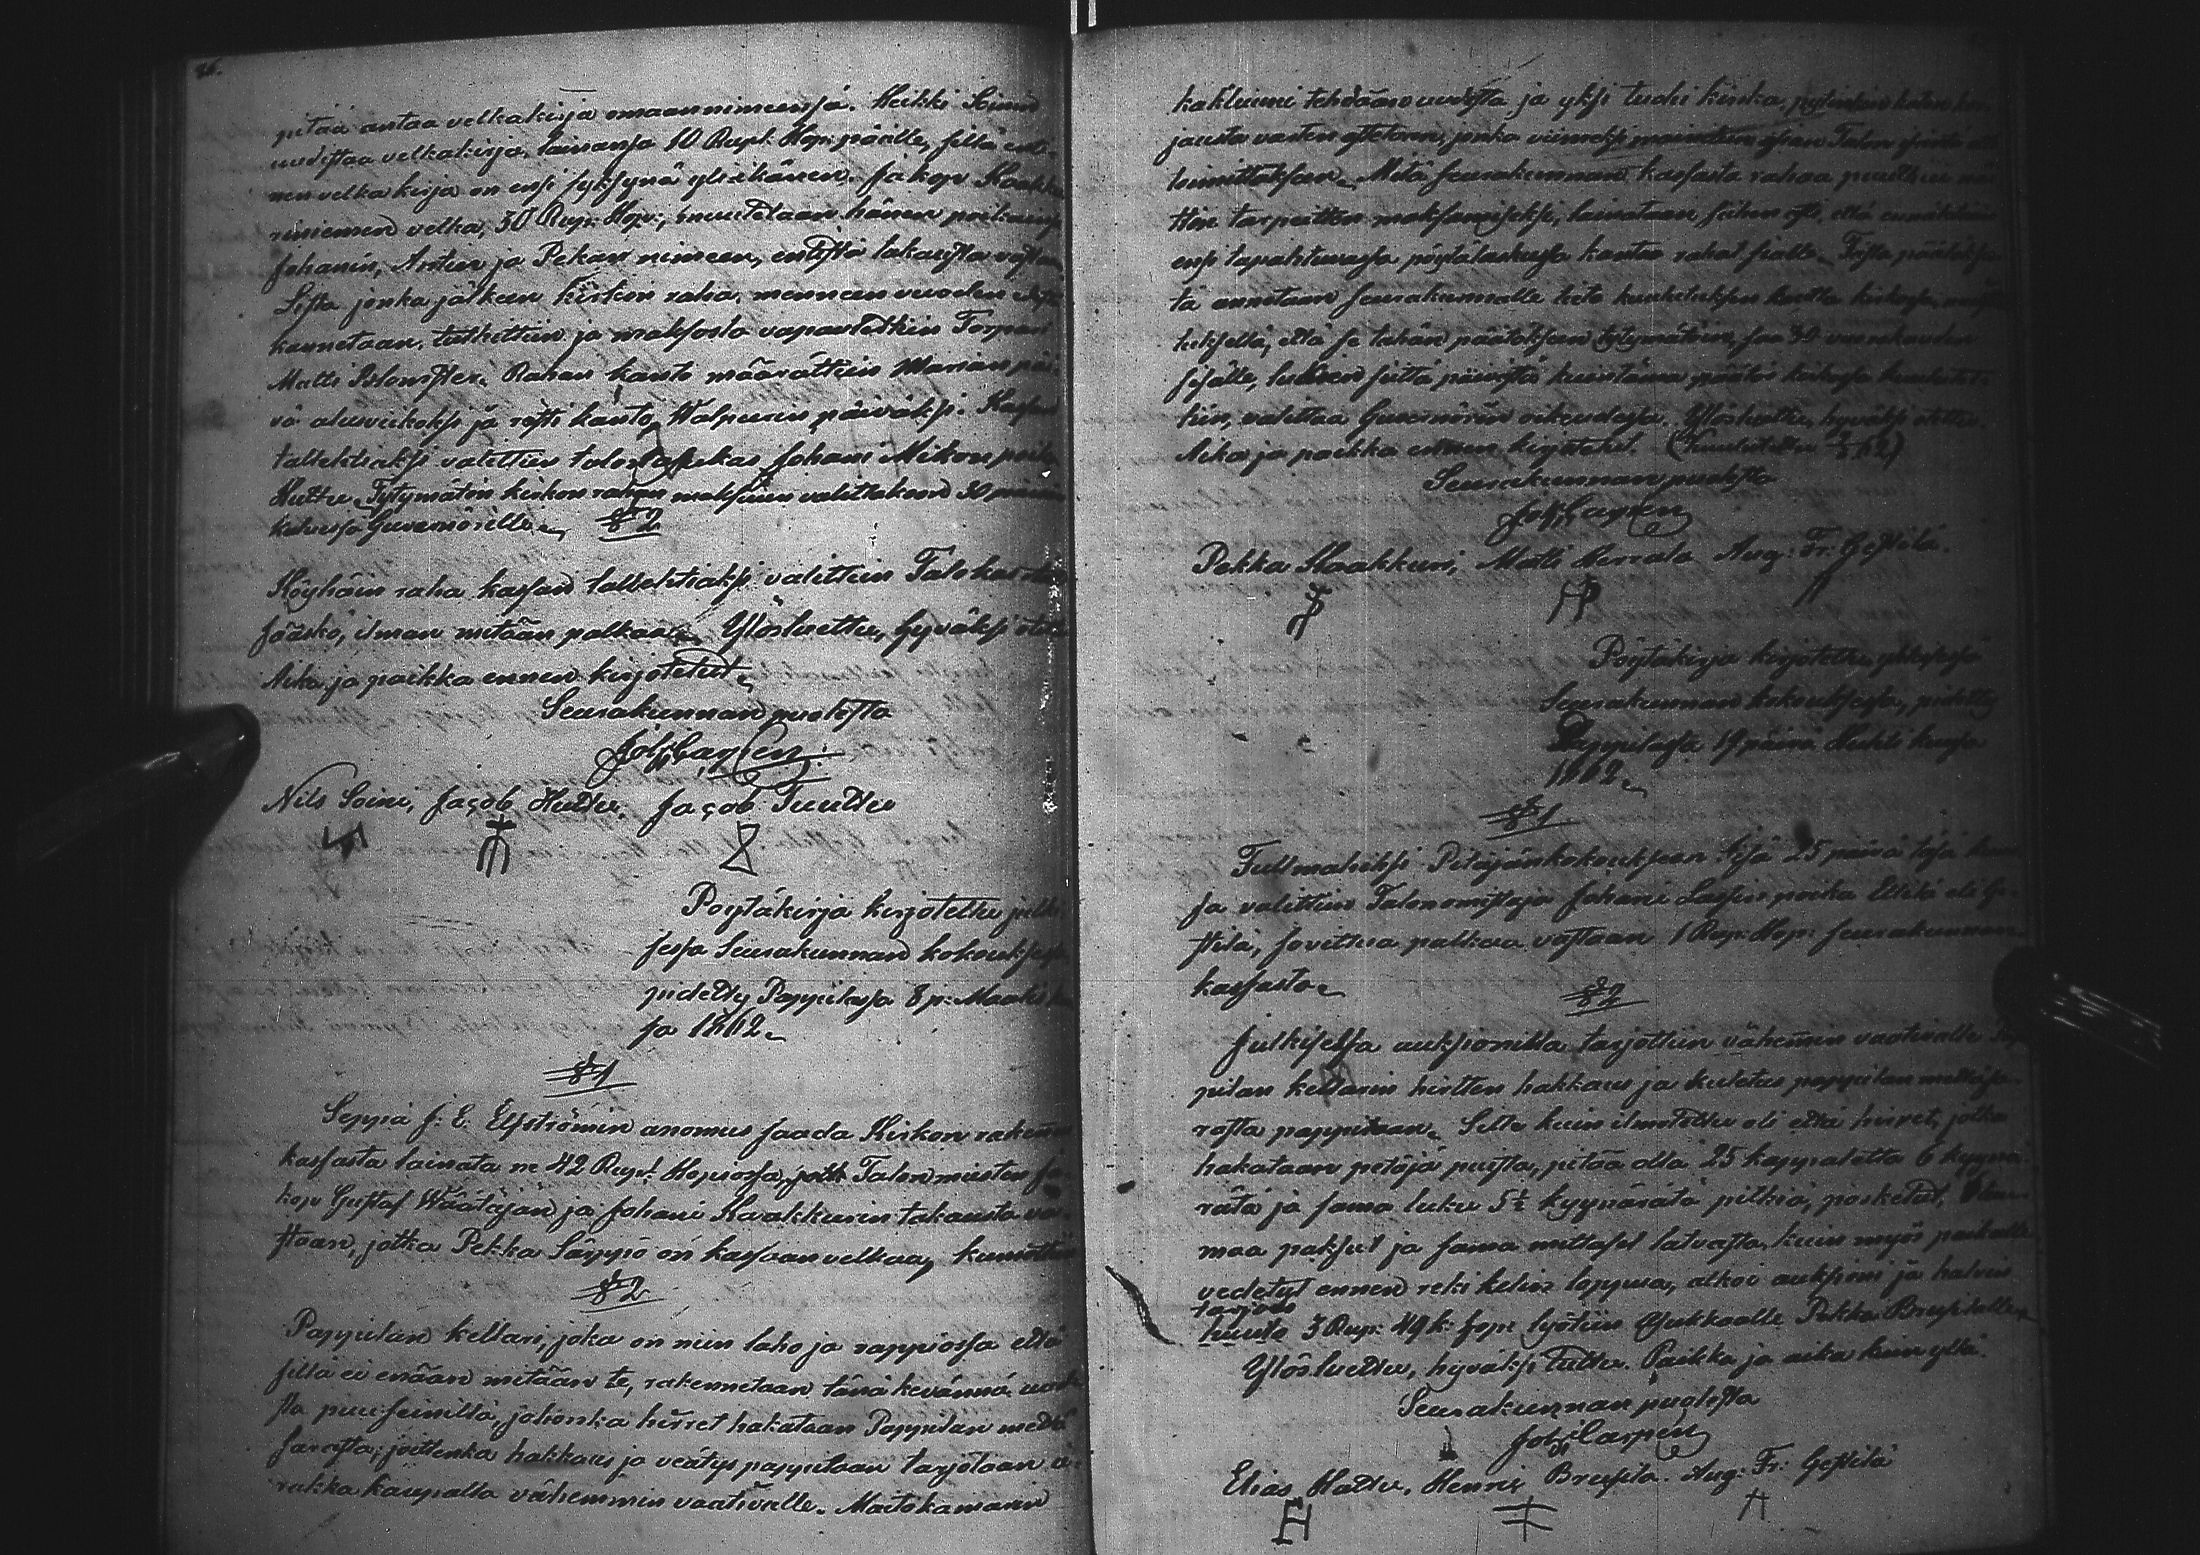 86.
pitää antaa velkakirja omaan nimeensä. Heikki Soinin
uudistaa velkakirja lainansa 10 Rupl. Hop: päälle, sillä enti-
nen velka kirja on ensi syksynä yliikäinen. Jakop Kaakku-
riniemen velka, 30 Rup: Hop:, muutetaan hänen poikainsa
Johanin, Antin ja Pekan nimeen, entistä takausta vastaan
Lista jonka jälkeen kirkon raha, menneen vuoden
kannetaan, tutkittiin ja maksosta vapautettiin Torpari
Matti Blomster. Rahan kanto määrättiin Marian päi-
vä alusviikoksi ja rästi kanto Walpurin päiväksi. Kassan
tallehtiaksi valittiin talon Johani Mikon poika
Huttu. Tytymätön kirkon rahan maksuun valittakoon 30 päivän
kuluessa Guvernörille.
§ 2
Köyhäin raha kassan tallehtiaksi valittiin Talokas
Jääskö, ilman mitään palkkaa. Ylösluettu, hyväksi otettu
Aika ja paikka ennen kirjotetut.
Seurakunnan puolesta
Joh Carpén
Nils Soini, Jacob Huttu, Jacob Tuuttu
Pöytäkirja kirjotettu julki-
sessa Seurakunnan kokouksessa
pidetty Pappilassa 8 p: Maalis kuu-
sa 1862.
§ 1
Seppä J: E. Elfströmin anomus saada Kirkon rakennus
kassasta lainata ne 42 Rupl. Hopiossa, jotk Talon miesten Ja-
kop Gustaf Wäätäjän ja Johani Kaakkurin takausta va-
staan, jotka Pekka Säppö on kassaan velkaa,
§ 2
Pappilan kellari, joka on niin laho ja rappiossa että
sillä ei enään mitään te, rakennetaan tänä kevännä uude-
sta puu seinillä, johonka hirret hakataan Pappilan mettä
sarasta, joittenka hakkaus ja veätys pappilaan tarjotaan u-
rakka kaupalla vähemmin vaativalle. Maitokamarin
kakluuni tehdään uudesta ja yksi tuohi kiska,
jausta varten otetaan, jonka Talon
toimittakseen. Mitä seurakunnan kassasta rahaa puuttuu näi-
tten tarpeitten maksamiseksi, lainataan siihen asti, että
ensi tapahtuvassa pöytälaskussa kantaa rahat sialle. Tästä päätökses-
tä annetaan seurakunnalle tieto kuulutuksen kautta kirkossa, muis-
tutuksella, että se tähän päätökseen tytymätöin, saa 30 vuorokauden
sisälle, lukein siitä päivästä kuin tämä päätös kirkossa kuulutet-
tiin, valittaa Guvernörin oikeudessa. Ylösluettu, hyväksi otettu.
Aika ja paikka ennen kirjotetut. (Kuulutettu 9/3 62)
Seurakunnan puolesta
Joh Carpén
Pekka Kaakkuri, Matti Kerrala Aug: Fr: Gestilä.
Pöytäkirja kirjotettu julkisessa
Seurakunnan kokouksessa, pidetty
Pappilassa 19 päivä Huhti kuussa
1862.
§ 1
Tullmahiksi Pitäjänkokoukseen 25 päivä tässä kuu-
sa valittiin Talonomistaja Johani Lassin poika Eltilä eli Ge-
stilä, sovittua palkkaa vastaan 1 Rup: Hop: seurakunnan
kassasta.
§ 2
Julkisella auksionilla tarjottiin vähemin vaativalle Pap-
pilan kellarin hirtten hakkaus ja kuletus pappilan mettäsa-
rasta pappilaan. Sitte kuin ilmotettu oli että hirret, jotka
hakataan petäjä puista, pitää olla 25 kappaletta 6 kyynä-
rätä ja sama luku 5½ kyynärätä pitkiä, pasketut, 6 tuu-
maa paksut ja sama mittaset latvasta, kuin myös paikalle
vedetyt ennen reki kelin loppua, alkoi auksioni ja halvin
tarjous
huuto 3 Rup: 49 k: hop: lyötiin Ylikkaalle Pekka Brusilalle.
Ylösluettu, hyväksi tuttu. Paikka ja aika kuin yllä.
Seurakunnan puolesta
Joh Carpén
Elias Huttu, Henric Brusila. Aug: Fr: Gestilä